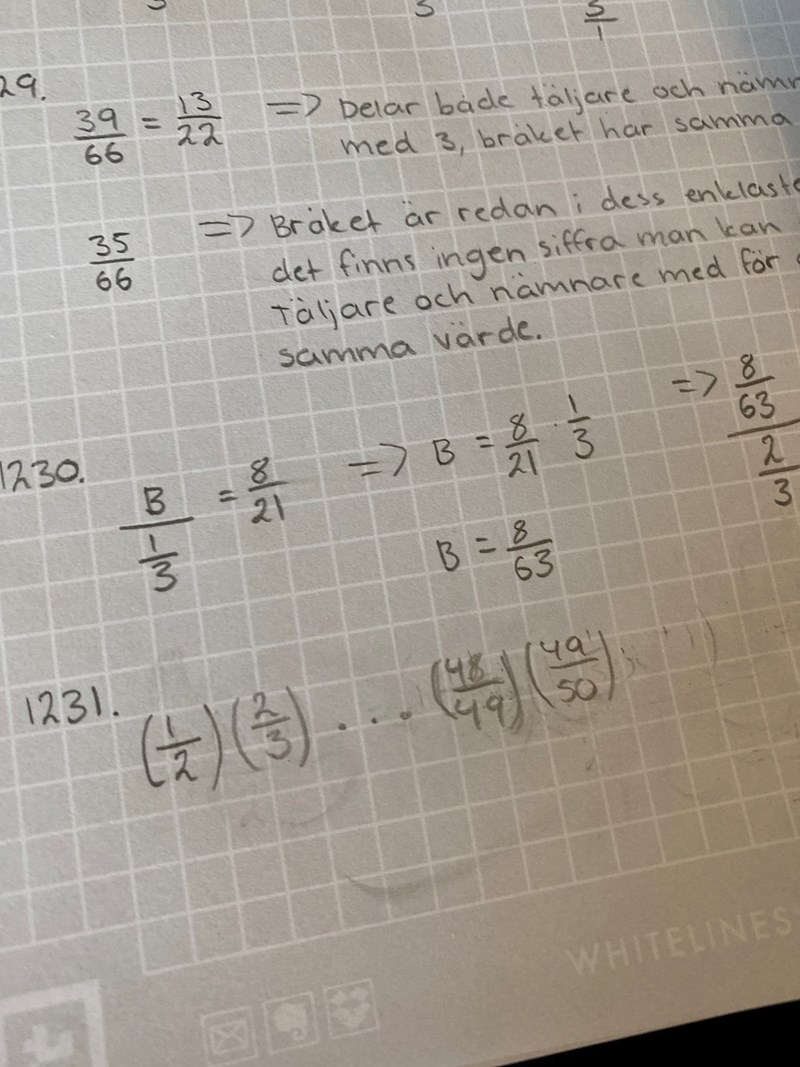 29.
39/66 = 13/22 => Delar både täljare och nämn
med 3, bråket har samma
35/66 => Bråket är redan i dess enklaste
det finns ingen siffra man kan
täljare och nämnare med för
samma värde.
1230. B/(1/3) = 8/21 => B = 8/21 · 1/3 => (8/63)/(2/3)
B = 8/63
1231. (1/2)(2/3) . . . (48/49)(49/50)
WHITELINES